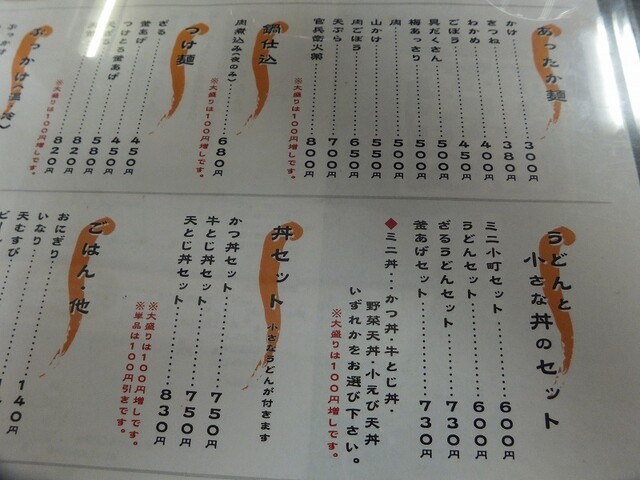 あったか麺
かけ……300円
きつね……380円
わかめ……400円
ごぼう……450円
具だくさん……500円
梅あっさり……500円
肉……500円
山かけ……500円
肉ごぼう……650円
天ぷら……700円
官兵衛……800円
※大盛りは100円増しです。
鍋仕込
肉煮込み(夜のみ)……680円
※大盛りは100円増しです。
つけ麺
ざる……450円
釜あげ……450円
つけとろ釜あげ……580円
天ざる……820円
820円
※大盛りは100円増しです。
ぶっかけ(温・冷)
ぶっかけ
うどんと
小さな丼のセット
ミニ小町セット……600円
うどんセット……600円
ざるうどんセット……730円
釜あげセット……730円
◆ミニ丼…かつ丼・牛とじ丼・
野菜天丼・小えび天丼
いずれかをお選び下さい。
※大盛りは100円増しです。
丼セット 小さなうどんが付きます
かつ丼セット……750円
牛とじ丼セット……750円
天とじ丼セット……830円
※大盛りは100円増しです。
※単品は100円引きです。
ごはん・他
おにぎり……140円
いなり
天むすび